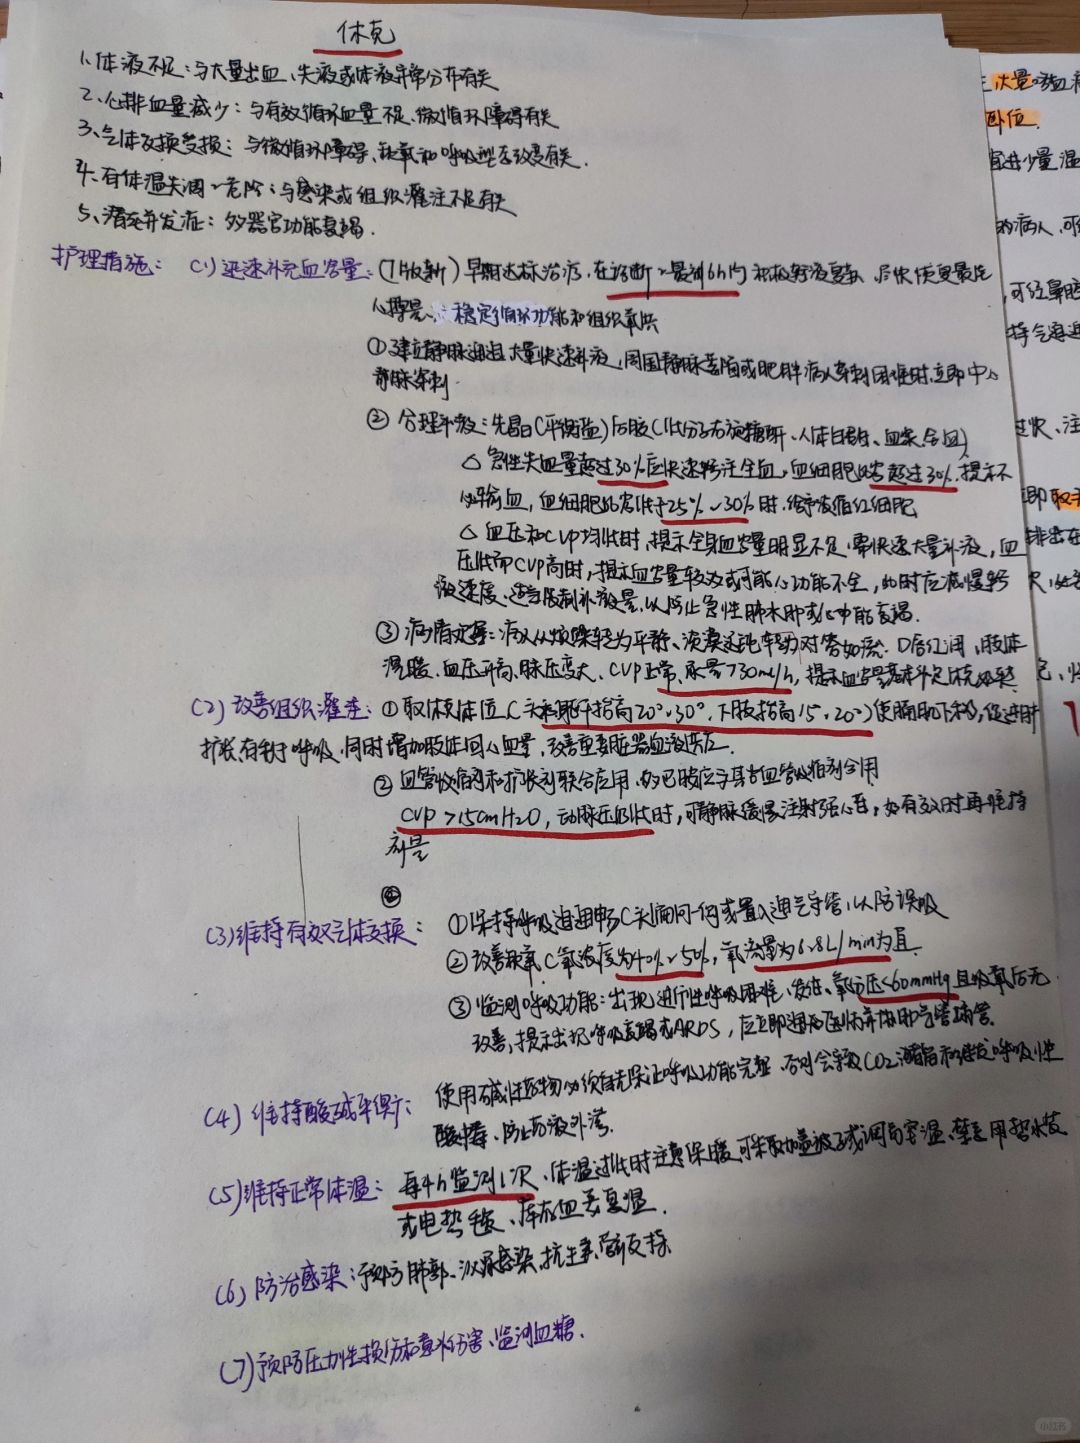 休克
1、体液不足：与大量出血、失液或体液异常分布有关
2、心排血量减少：与有效循环血量不足、微循环障碍有关
3、气体交换受损：与微循环障碍、缺氧和呼吸型态改变有关.
4、有体温失调的危险：与感染或组织灌注不足有关
5、潜在并发症：多器官功能衰竭.
护理措施： (1)迅速补充血容量：(7版新)早期达标治疗，在诊断的最初6h内积极输液复苏，尽快恢复最佳
心搏量、稳定循环功能和组织氧供
①建立静脉通道大量快速补液，周围静脉萎陷或肥胖病人穿刺困难时，立即中心
静脉穿刺.
②合理补液：先晶(平衡盐)后胶(低分子右旋糖酐、人体白蛋白、血浆、全血)
△急性失血量超过30%应快速输注全血，血细胞比容超过30%，提示不
必输血，血细胞比容低于25%~30%时，给予浓缩红细胞
△血压和CVP均低时，提示全身血容量明显不足，需快速大量补液，血
压低而CVP高时，提示血容量较多或可能心功能不全，此时应减慢输
液速度、适当限制补液量，以防止急性肺水肿或心功能衰竭.
③病情观察：病人从烦躁转为平静、淡漠迟钝转为对答如流、口唇红润，肢体
温暖、血压升高、脉压变大、CVP正常、尿量>30ml/h，提示血容量基本补足休克好转
(2)改善组织灌注：①取休克体位(头和躯干抬高20°~30°，下肢抬高15°~20°)使膈肌下移，促进肺
扩张有利于呼吸，同时增加肢体回心血量，改善重要脏器血液供应.
②血管收缩剂和扩张剂联合应用，如多巴胺应与其它血管收缩剂合用
CVP>15cmH2O，动脉压仍低时，可静脉缓慢注射强心苷，如有效时再维持
剂量
(3)维持有效气体交换： ①保持呼吸道通畅(头偏向一侧或置入通气导管，以防误吸
②改善缺氧(氧浓度为40%~50%，氧流量为6~8L/min为宜
③监测呼吸功能：出现进行性呼吸困难、发绀、氧分压<60mmHg且吸氧后无
改善，提示出现呼吸衰竭或ARDS，应立即通知医生并协助气管插管.
(4)维持酸碱平衡： 使用碱性药物必须首先保证呼吸功能完整，否则会导致CO2潴留和继发呼吸性
酸中毒、防止药液外渗.
(5)维持正常体温： 每4h监测1次、体温过低时注意保暖，可采取加盖被子或调高室温，禁忌用热水袋
或电热毯、库存血要复温.
(6)防治感染：预防肺部、泌尿感染、抗生素、营养支持.
(7)预防压力性损伤和意外伤害、监测血糖.
大量咯血
卧位.
宜进少量温
的病人，可
立即取
小红书